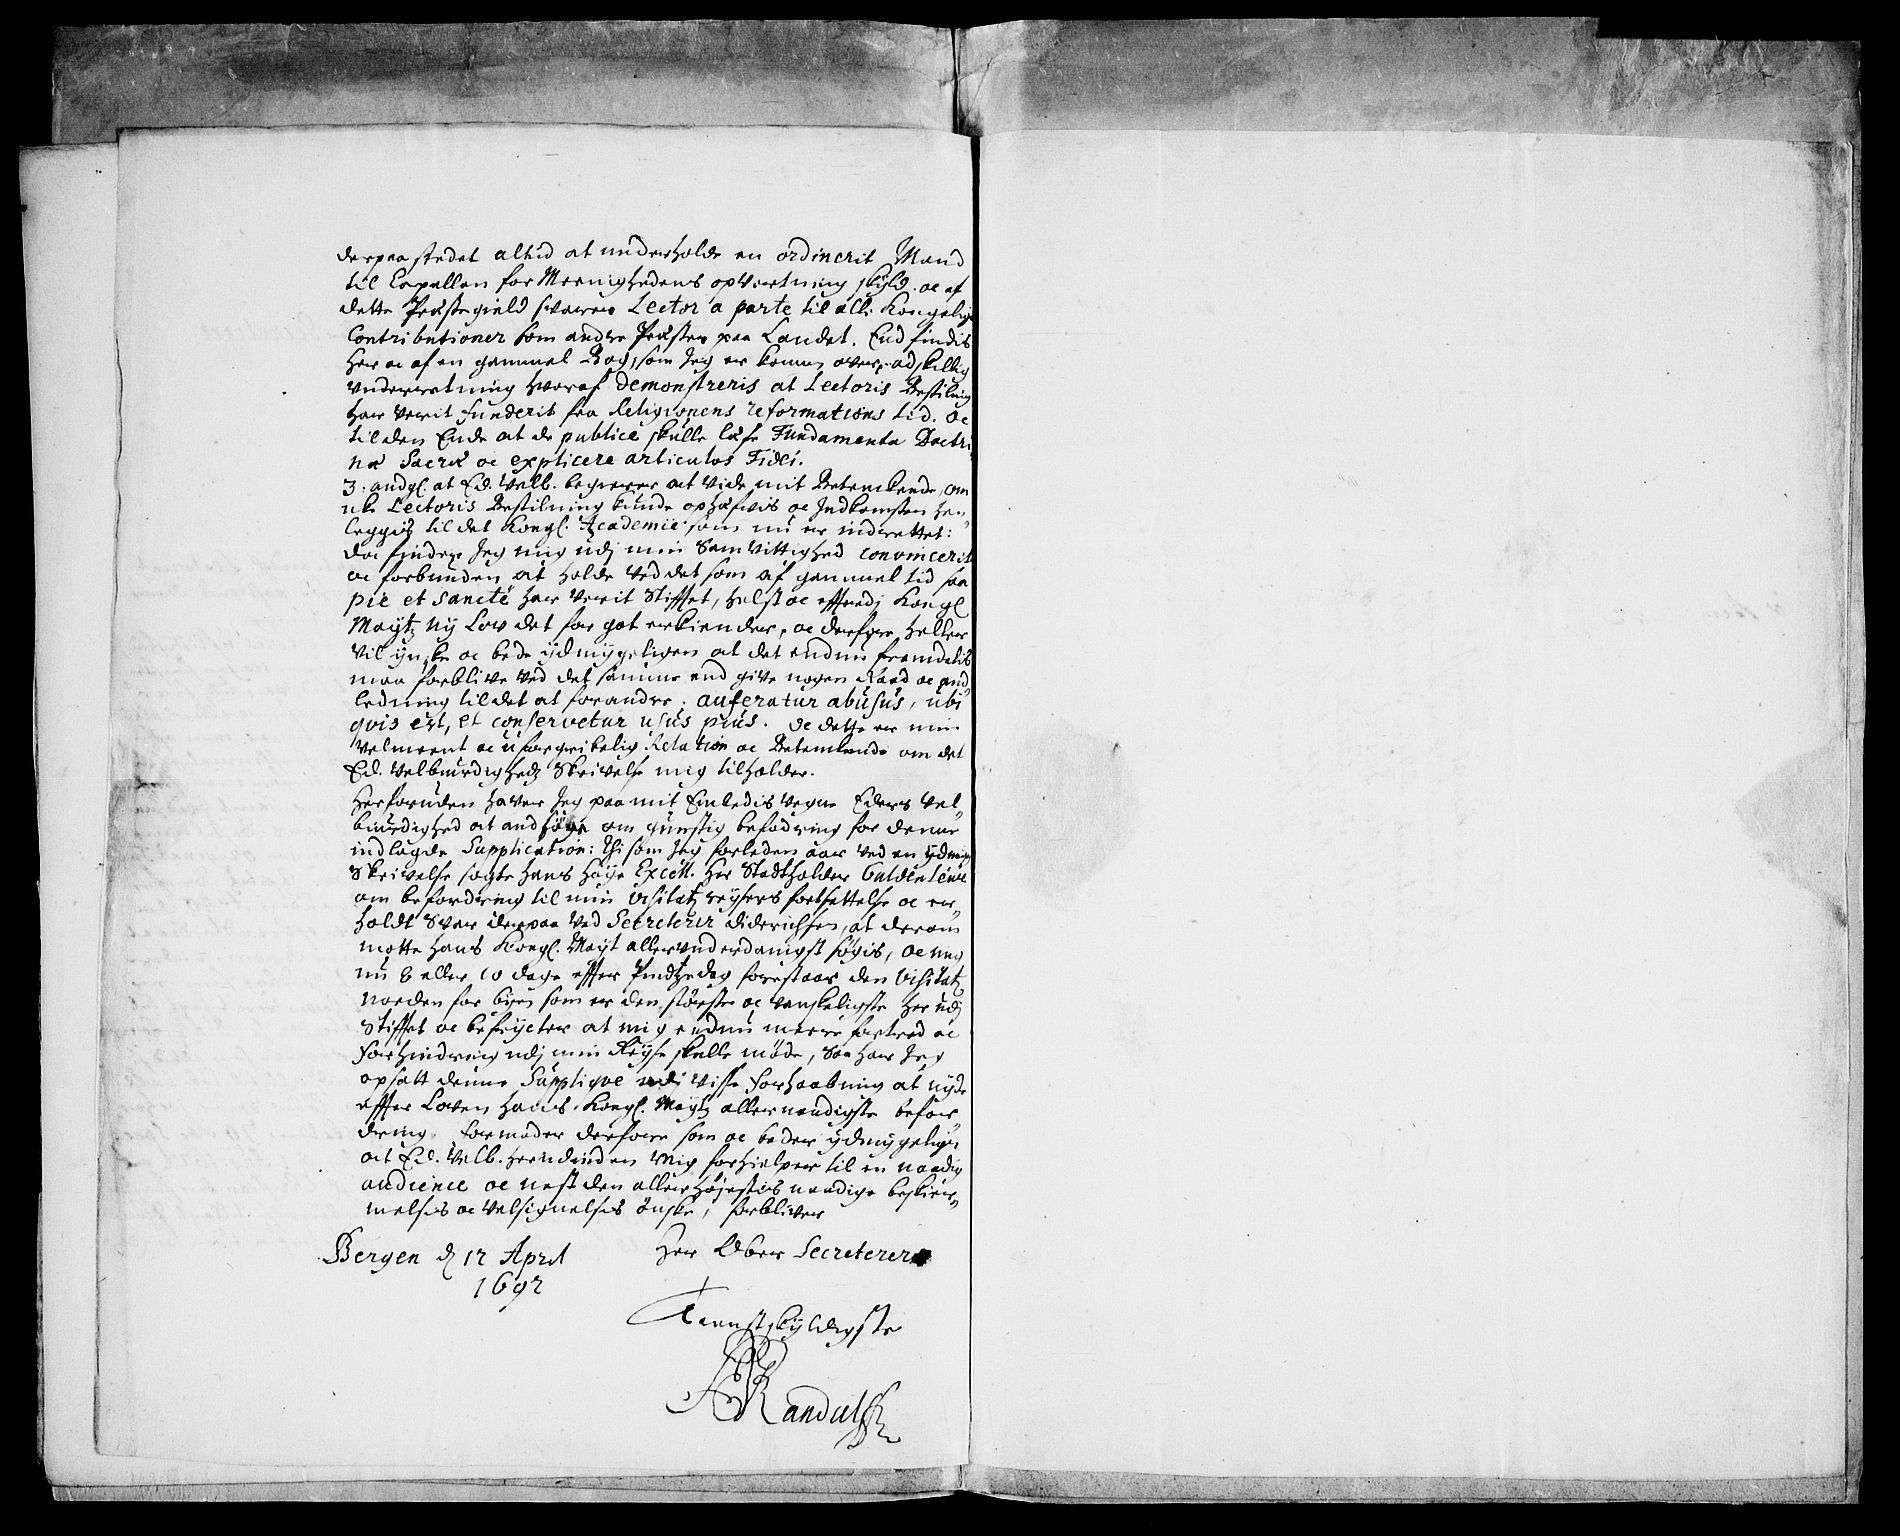 derpaa stedet altid at underholde en ordinerit Mand
til Capellan for Meenighedens opvartning skyld. oc af
dette Præstegield svarer Lector a parte til alle Kongelige
Contributioner som andre Præster paa Landet. End findis
her oc af en gammel Bog, som Jeg er kommen over, adskillig
Underretning hvoraf demonstreris at Lectoris Bestilning
har verit funderit fra Religionens reformations tid. Oc
til den Ende at de publicè skulle læse Fundamenta Doctri
næ Sacræ oc explicere articulos Fidei.
3. andgl. at Ed. Velb. begierer at vide mit Betenckende, om
icke Lectoris Bestilning kunde ophæfvis oc Indkomsten hen
leggis til det Kongl. Academie som nu er indrettet:
da finder Jeg mig udj min Samvittighed convincerit
oc forbunden at holde ved det som af gammel tid saa
piè et sanctè har verit Stifftet, helst oc efftredj Kongl
Maytz Ny Lov det for got erkiender, oc derfore heller
vil ynske oc bede ydmygeligen at det endnu fremdelis
maa forblive ved det samme end give nogen Raad oc and
ledning til det at forandre; auferatur abusus, ubi
qvis est, et conservetur usus pius. Oc dette er min
velmeent oc uforgribelig Relation oc Betenckende om det
Ed. Velbyrdighedz Skrivelse mig tilholder.
Herforuden haver Jeg paa mit Embedis vegne Eders Vel
byrdighed at andsøge om gunstig befodring for denne
indlagde Supplication: thi som Jeg forleden aar ved en ydmyg
Skrivelse søgte Hans Høye Excell. Her Stadtholder Guldenlewe
om befordring til min Visitatz reyses fortsettelse oc er¬
holdt Svar derpaa ved Secreterer Diderichsen, at derom
motte Hans Kongl. Mayt allerunderdanigst søgis, oc mig
nu 8 eller 10 dage effter Pindtzedag forestaar den Visitatz
norden for byen som er den største oc vanskeligste her udj
Stifftet oc befrycter at mig endnu meere fortred oc
forhindring udj min Reyse skulle møde, saa har Jeg
opsatt denne Supplique udi visse forhaabning at nyde
effter Loven Hans Kongl. Maytz allernaadigste befor
dring. Formoder derfore som oc beder ydmygeligen
at Ed. Velb. herudinden mig forhielper til en naadig
audience oc nest den allerhøjestis naadige beskier¬
melsis oc velsignelsis ønske, forbliver
Bergen d 12 April
1692
Her Ober Secreterer
Tienstskyldigste
Randulff